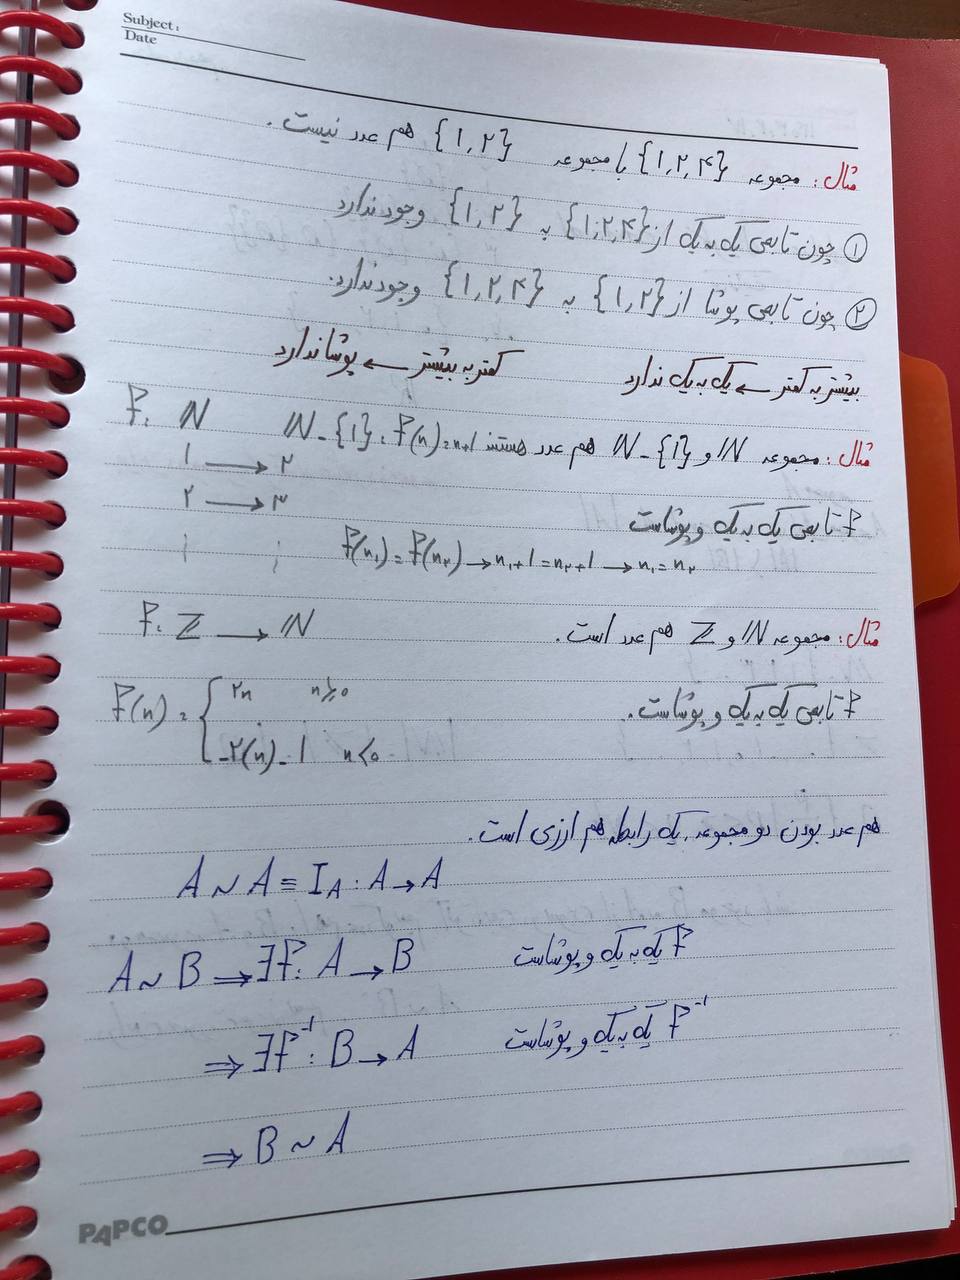 Subject:
Date
مثال: مجموعه {۱,۲,۴} با مجموعه {۱,۲} هم عدد نیست.
① چون تابعی یک به یک از {۱,۲,۴} به {۱,۲} وجود ندارد
② چون تابعی پوشا از {۱,۲} به {۱,۲,۴} وجود ندارد.
بیشتر به کمتر ← یک به یک ندارد کمتر به بیشتر ← پوشا ندارد
مثال: مجموعه ℕ و ℕ-{1} هم عدد هستند f(n)=n+1
f: ℕ ℕ-{1}:
۱ → ۲
۲ → ۳
f تابعی یک به یک و پوشاست
f(n₁)=f(n₂) → n₁+1=n₂+1 → n₁=n₂
مثال: مجموعه ℕ و ℤ هم عدد است.
f: ℤ → ℕ
f تابعی یک به یک و پوشاست.
f(n): { ۲n n≥0
-۲(n)-1 n<0
هم عدد بودن دو مجموعه، یک رابطه هم ارزی است.
A ~ A ≡ I_A : A → A
A ~ B ⇒ ∃f: A → B f یک به یک و پوشاست
⇒ ∃f⁻¹: B → A f⁻¹ یک به یک و پوشاست
⇒ B ~ A
PAPCO